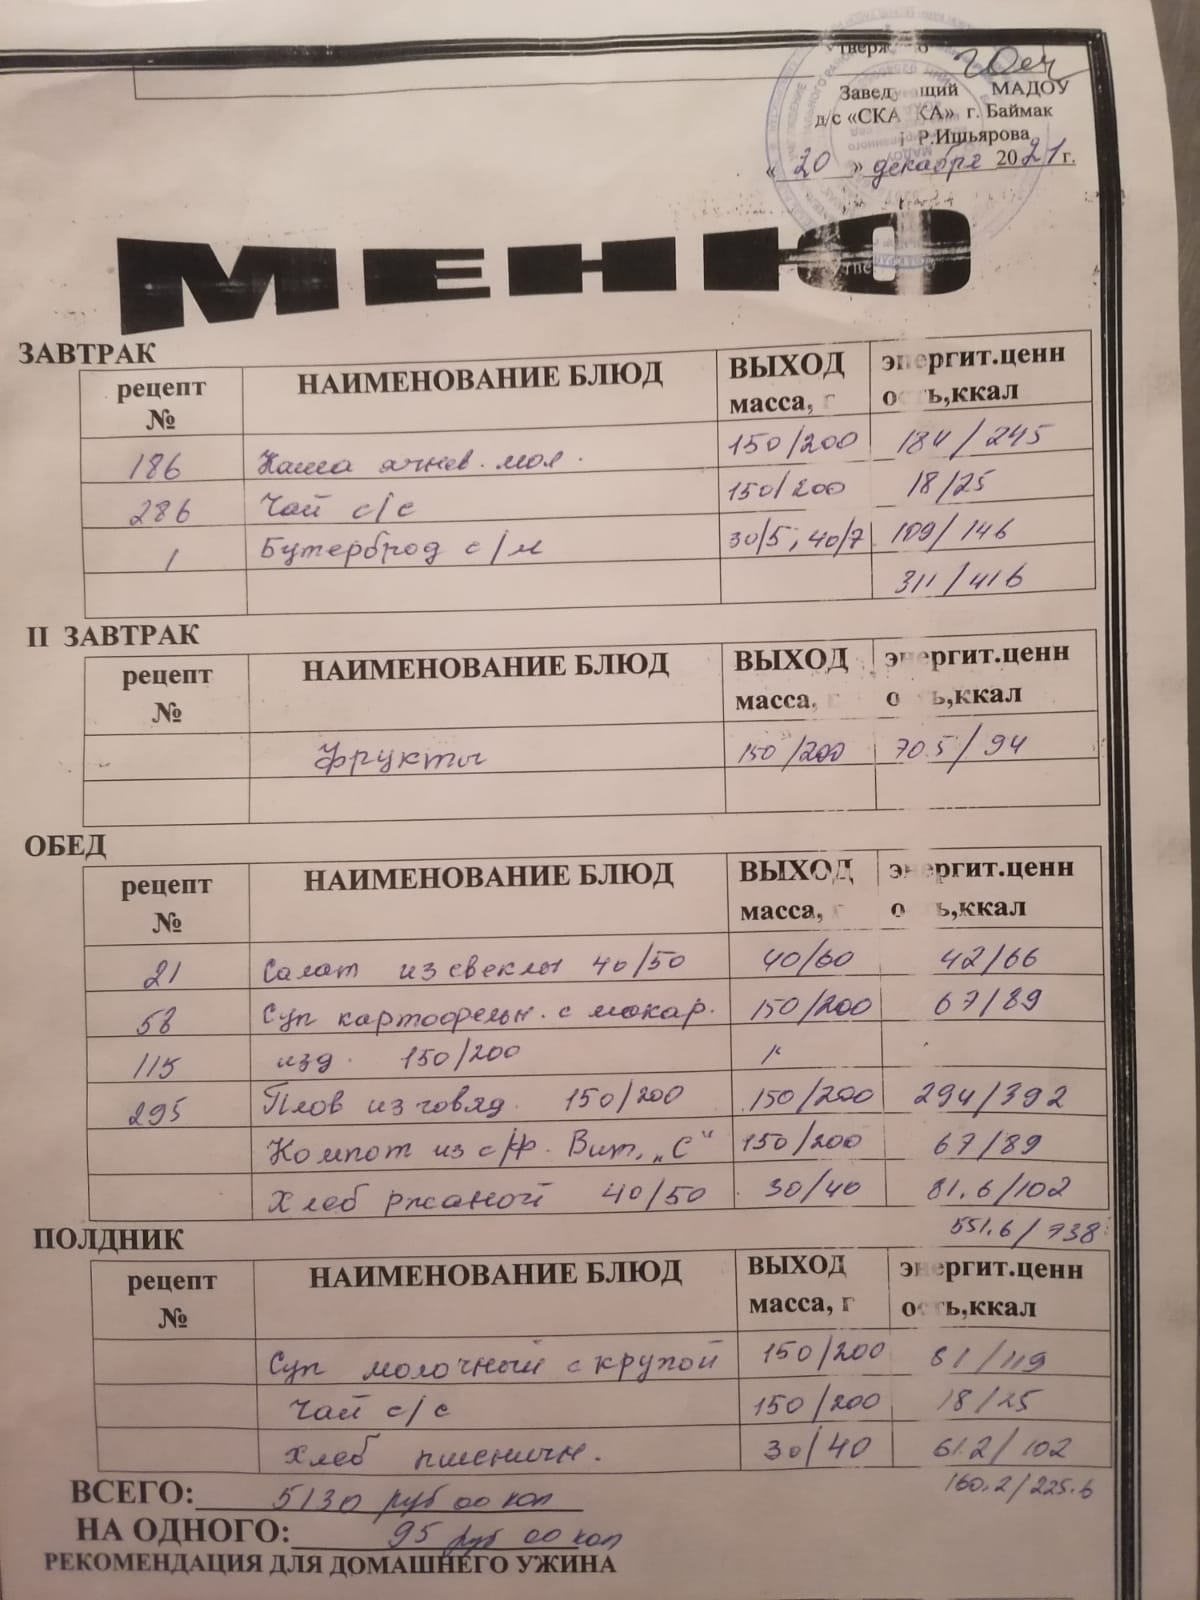 Заведующий МАДОУ
д/с «СКАЗКА» г. Баймак
Р.Ишьярова
« 20 » декабря 2021 г.
МЕНЮ
ЗАВТРАК
рецепт № НАИМЕНОВАНИЕ БЛЮД ВЫХОД масса, г энергит.ценность,ккал
186 Каша ячнев. мол. 150/200 184/245
286 Чай с/с 150/200 18/25
1 Бутерброд с/м 30/5; 40/7 109/146
311/416
II ЗАВТРАК
рецепт № НАИМЕНОВАНИЕ БЛЮД ВЫХОД масса, г энергит.ценность,ккал
Фрукты 150/200 70.5/94
ОБЕД
рецепт № НАИМЕНОВАНИЕ БЛЮД ВЫХОД масса, г энергит.ценность,ккал
21 Салат из свеклы 40/50 40/60 42/66
58 Суп картофельн. с макар. 150/200 67/89
115 изд. 150/200
295 Плов из говяд. 150/200 150/200 294/392
Компот из с/ф. Вит. „С“ 150/200 67/89
Хлеб ржаной 40/50 30/40 81.6/102
551.6/738
ПОЛДНИК
рецепт № НАИМЕНОВАНИЕ БЛЮД ВЫХОД масса, г энергит.ценность,ккал
Суп молочный с крупой 150/200 81/119
Чай с/с 150/200 18/25
Хлеб пшеничн. 30/40 61.2/102
160.2/225.6
ВСЕГО: 5130 руб 00 коп
НА ОДНОГО: 95 руб 00 коп
РЕКОМЕНДАЦИЯ ДЛЯ ДОМАШНЕГО УЖИНА